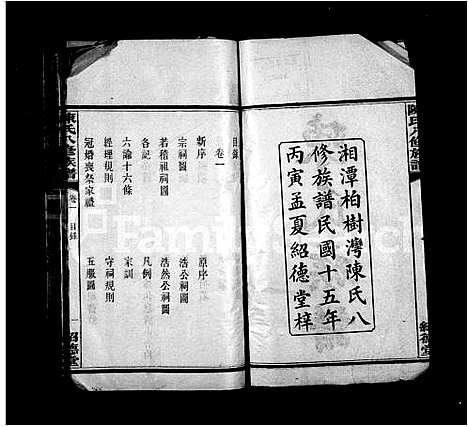 陳氏八修族譜
湘潭柏樹灣陳氏八
修族譜民國十五年
丙寅孟夏紹德堂梓
陳氏八修族譜
卷一
目錄
紹德堂
目錄
卷一
新序
原序
宗祠圖
浩公祠圖
若稽祖祠圖
浩然公祠圖
各記
凡例
六諭十六條
家訓
經理規則
守祠規則
冠婚喪祭家禮
五服圖